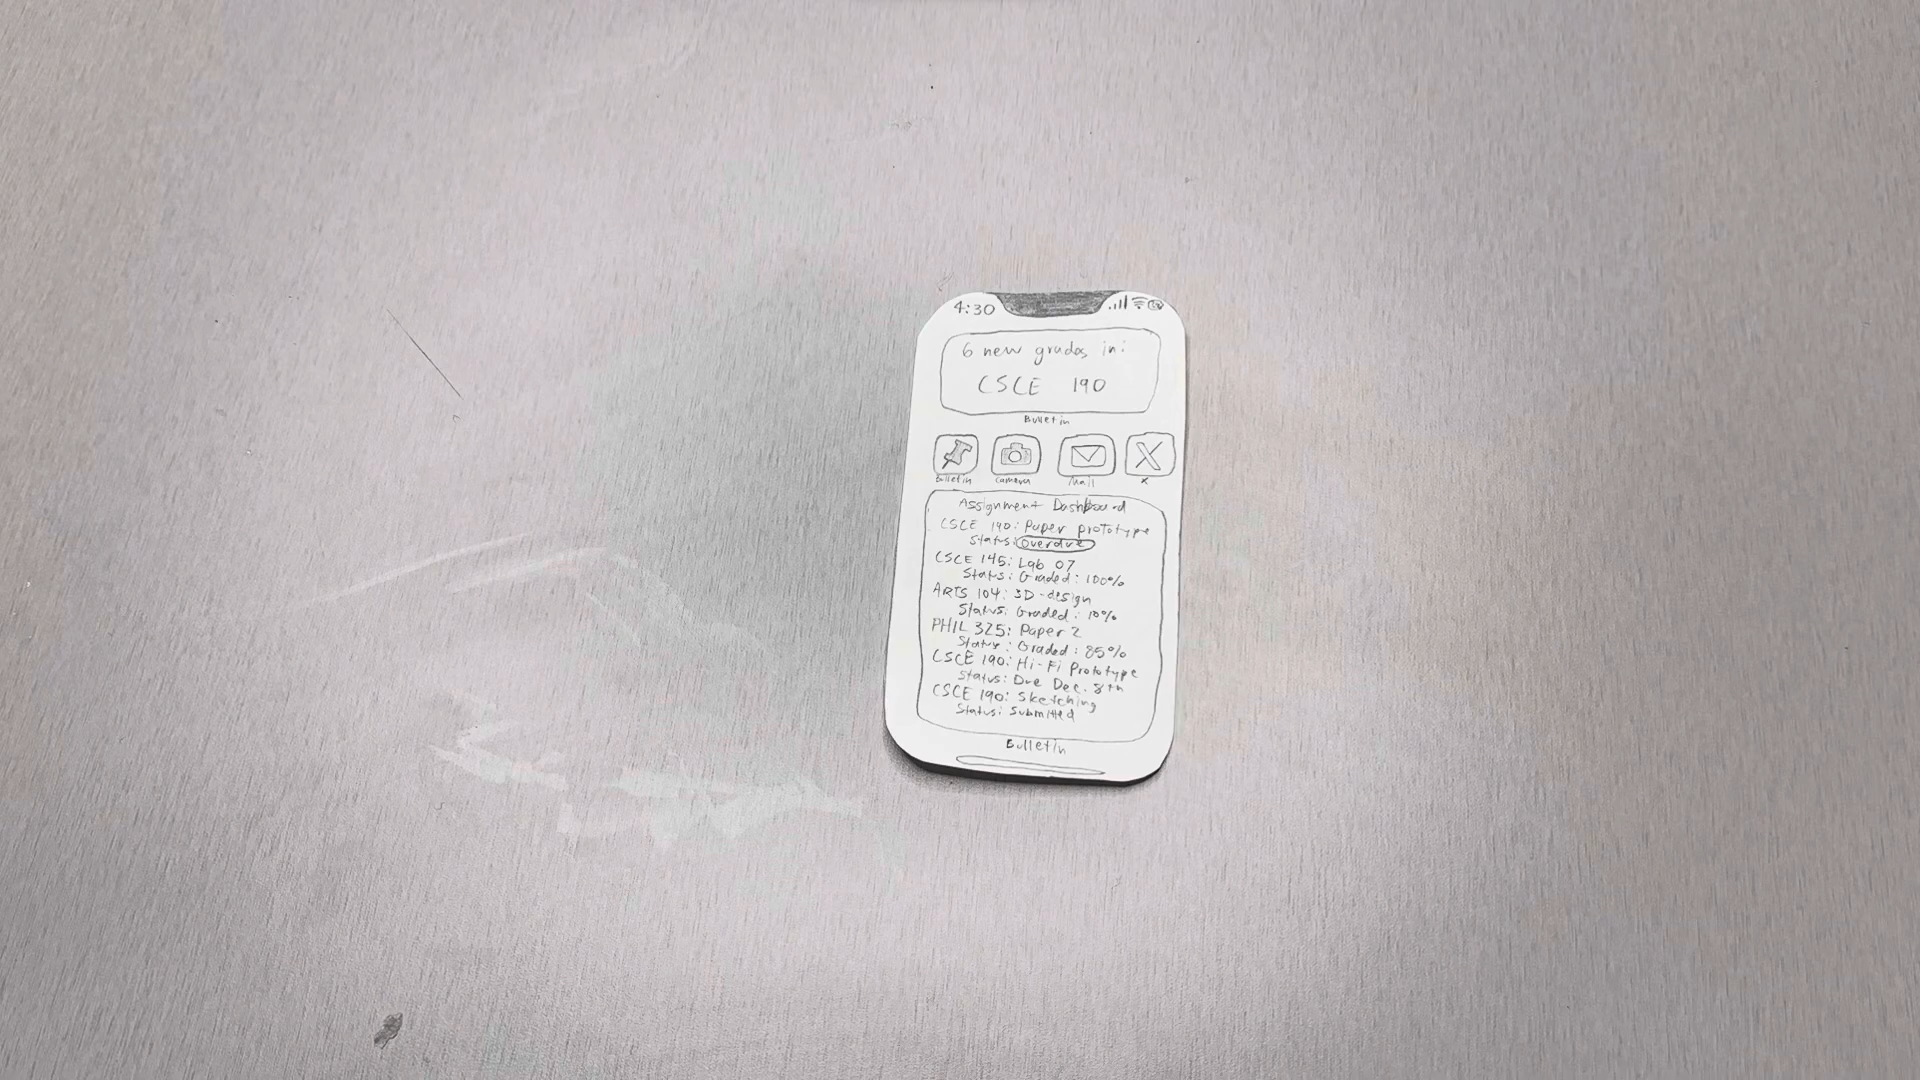 4:30
6 new grades in:
CSCE 190
Bulletin
Bulletin Camera Mail X
Assignment Dashboard
CSCE 190: Paper prototype
Status: Overdue
CSCE 145: Lab 07
Status: Graded: 100%
ARTS 104: 3D-design
Status: Graded: 10%
PHIL 325: Paper 2
Status: Graded: 85%
CSCE 190: Hi-Fi Prototype
Status: Due Dec. 8th
CSCE 190: Sketching
Status: Submitted
Bulletin